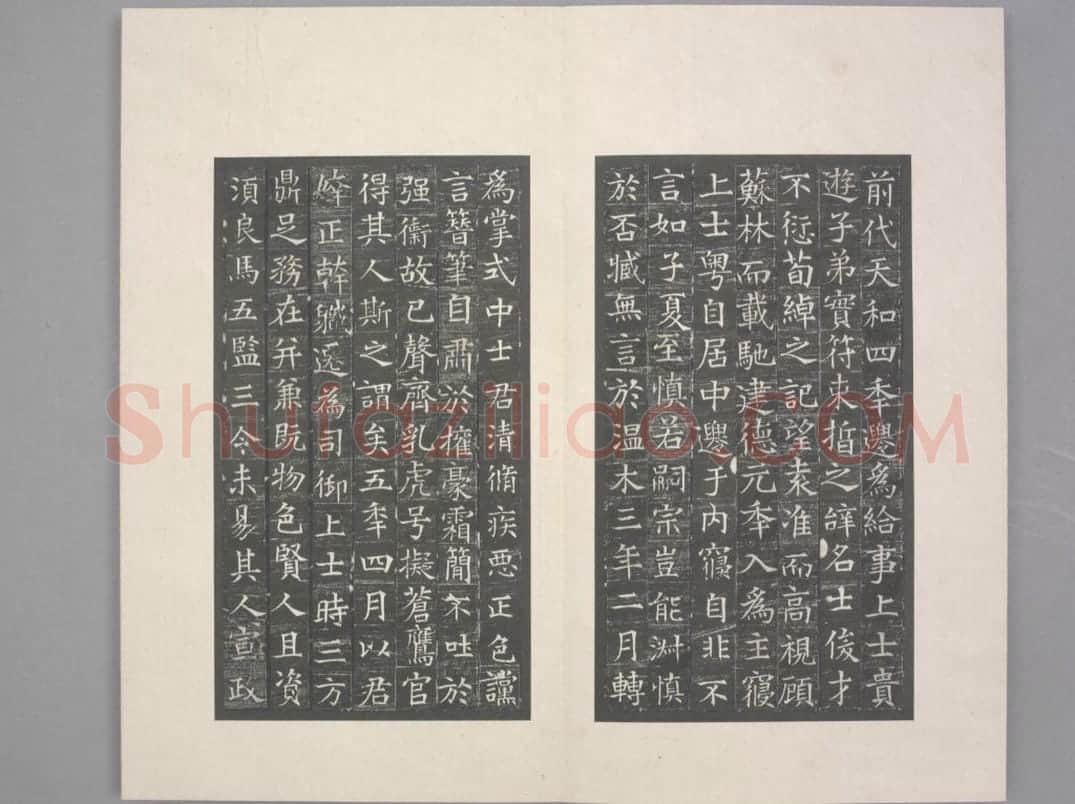 前代天和四年遷為給事上士貴
遊子弟實符束晢之辭名士俊才
不愆荀綽之記望袁准而高視顧
蘇林而載馳建德元年入為主寢
上士粵自居中遷于內寢自非不
言如子夏至慎若嗣宗豈能淵慎
於否臧無言於温木三年二月轉
為掌式中士君清脩疾惡正色讜
言簪筆自肅擁豪霜簡不吐於
强禦故已聲齊乳虎号擬蒼鷹官
得其人斯之謂矣五年四月以君
正幹職遷為司御上士時三方
鼎足務在并兼既物色賢人且資
須良馬五監三令未易其人宣政
Shufaziliao.COM